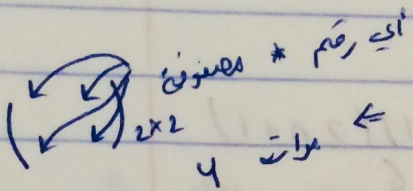 أي رقم * مصفوفة
2×2
⇐ مرات 4